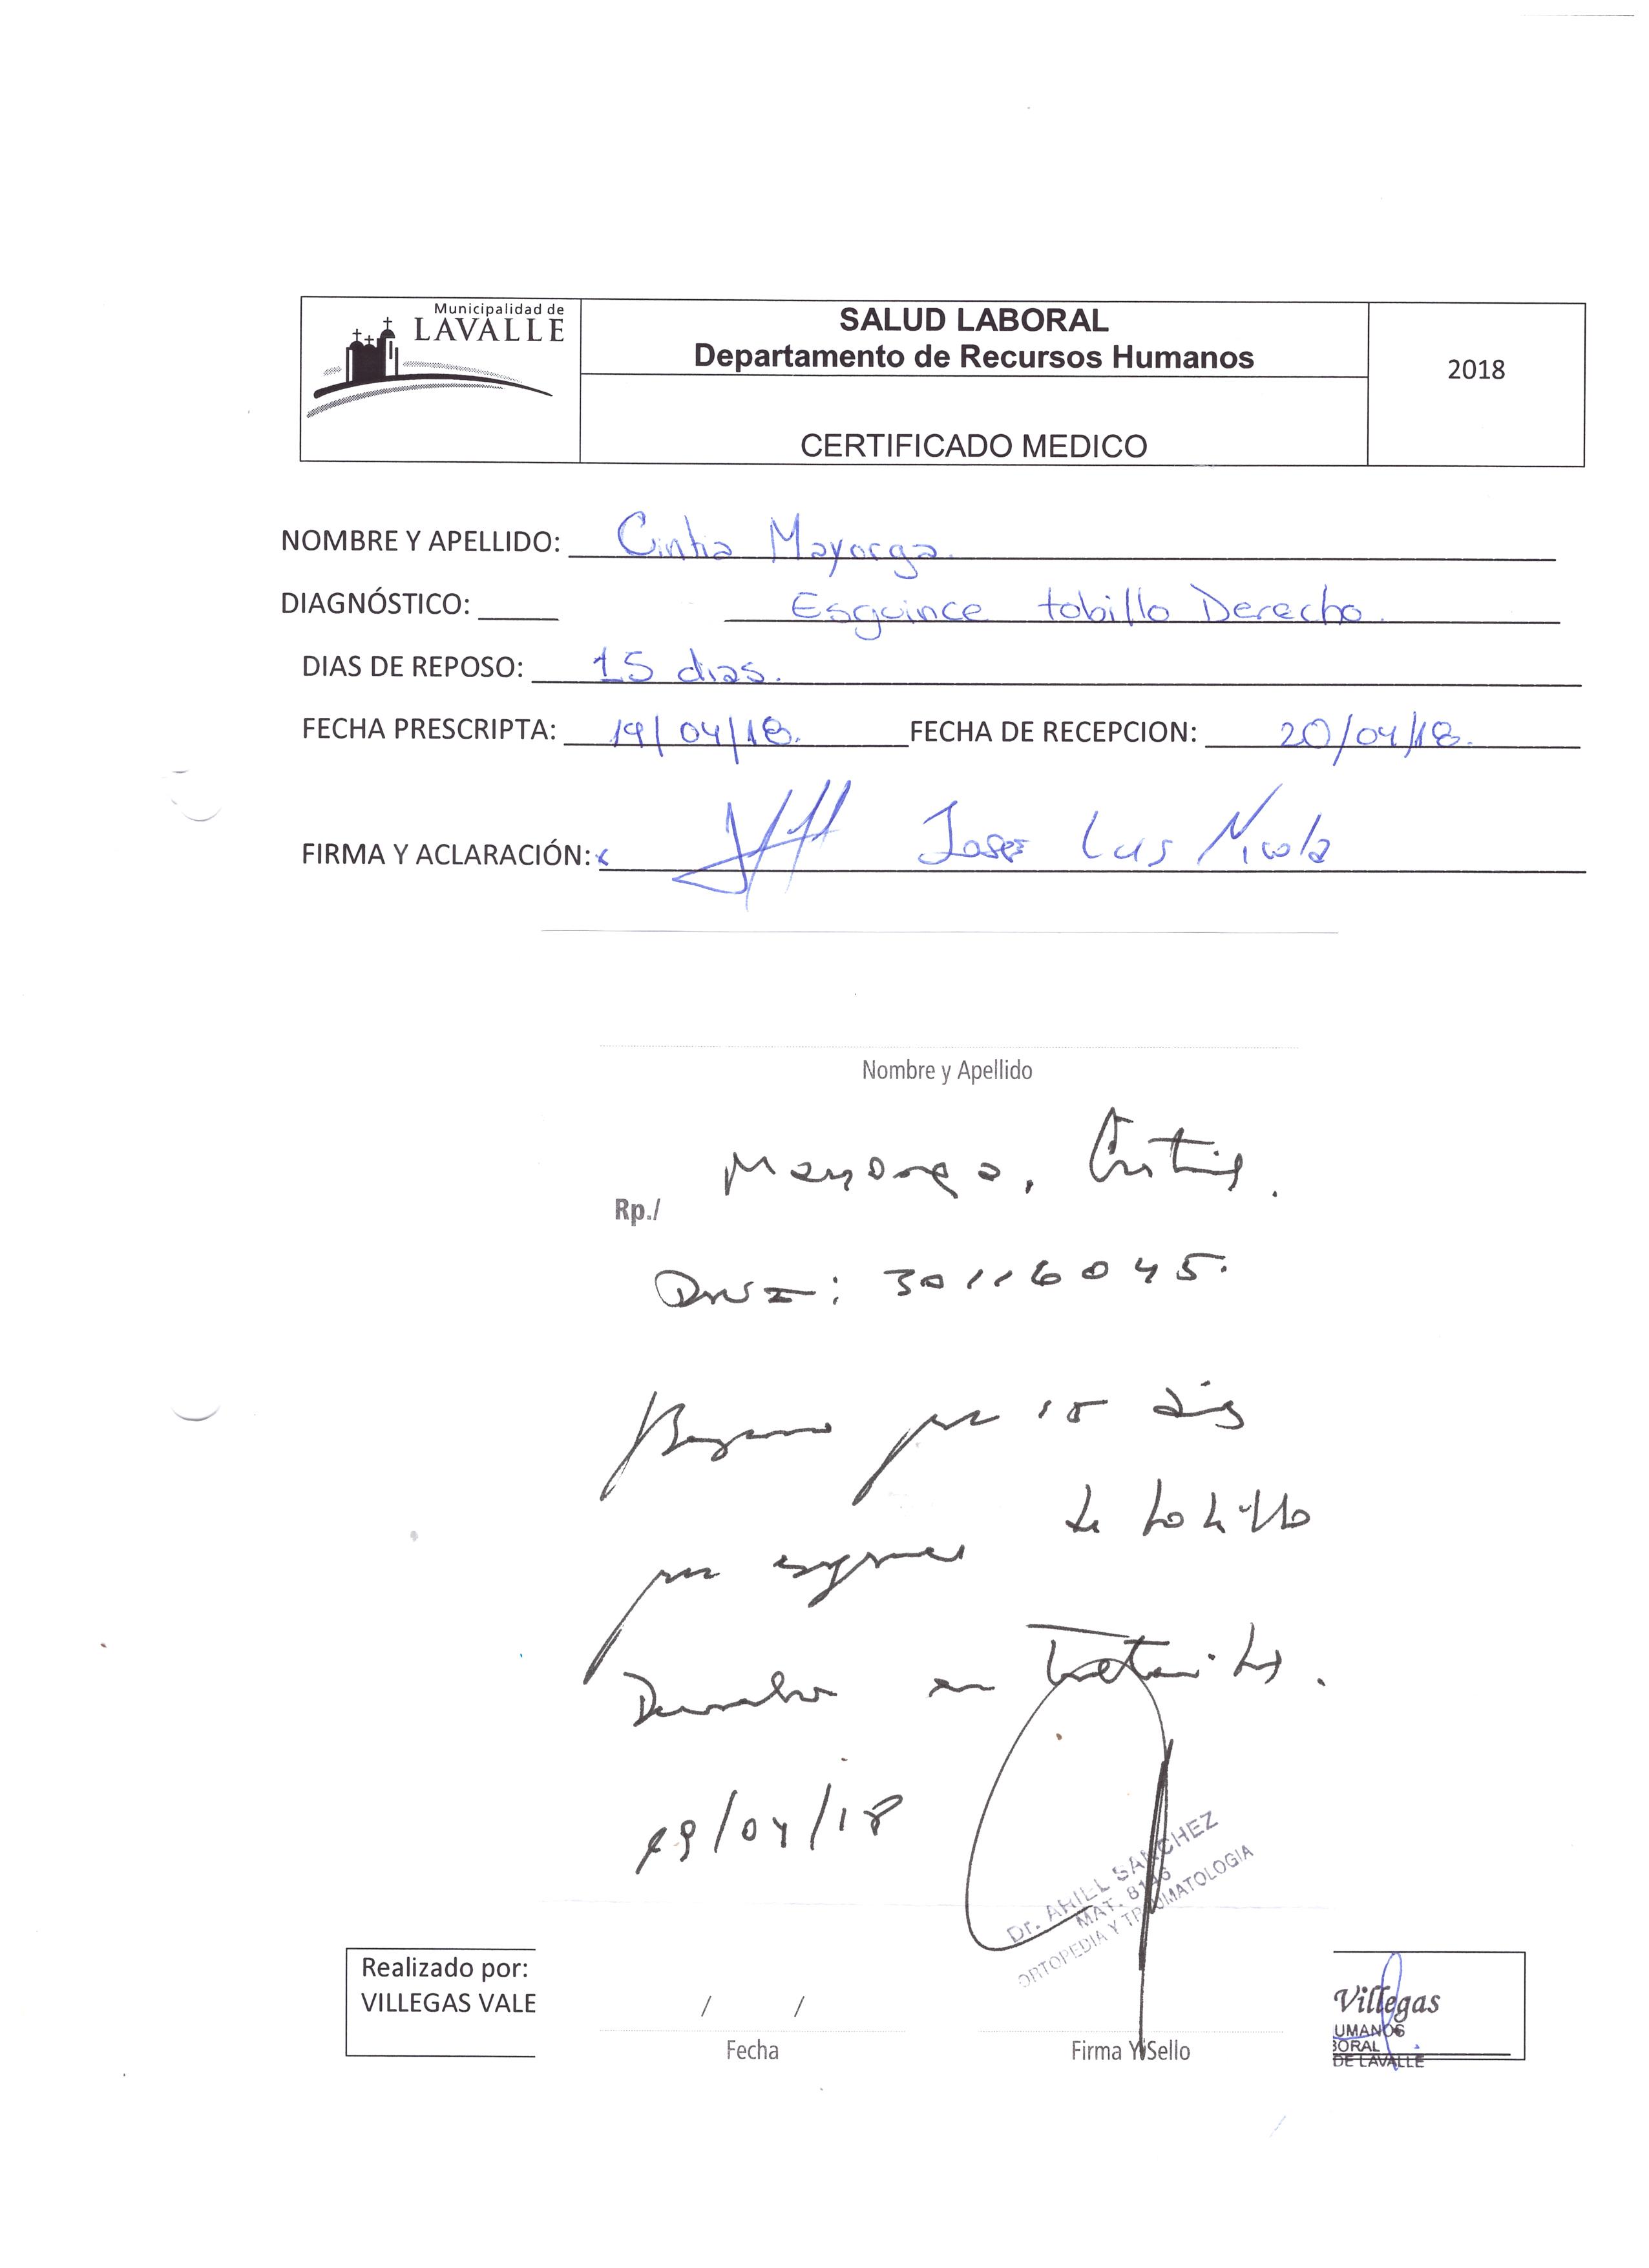 Municipalidad de
LAVALLE
SALUD LABORAL
Departamento de Recursos Humanos
2018
CERTIFICADO MEDICO
NOMBRE Y APELLIDO: Cintia Mayorga.
DIAGNÓSTICO: Esguince tobillo Derecho.
DIAS DE REPOSO: 15 dias.
FECHA PRESCRIPTA: 19/04/18. FECHA DE RECEPCION: 20/04/18.
FIRMA Y ACLARACIÓN: x Jose Luis Nicola
Nombre y Apellido
Mayorga, Cintia.
Rp./
DNI: 30116045.
por 15 dias
por esguince de tobillo
Derecho en
19/04/18
Dr. SANCHEZ
MAT.
ORTOPEDIA Y TRAUMATOLOGIA
Realizado por:
VILLEGAS VALE
/ /
Fecha
Firma Y Sello
Villegas
UMANOS
BORAL
DE LAVALLE